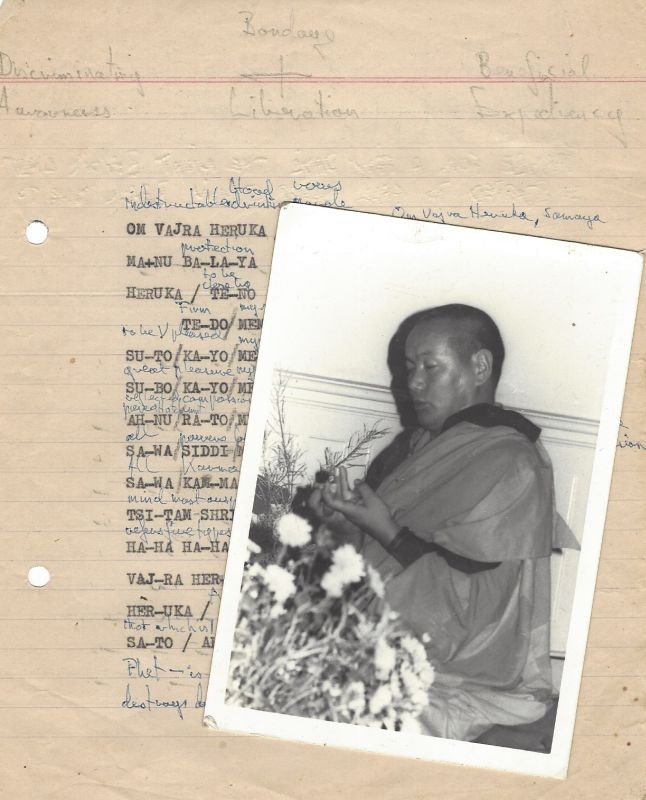 Bondage
Discriminating + Beneficial
Awareness Liberation Expediency
Good vows
Om Vajra Heruka, Samaya
OM VAJRA HERUKA
protection
MA-NU BA-LA-YA
to be
close to
HERUKA / TE-NO
Firm my
TE-DO/MEM
to be pleased my
SU-TO/KA-YO/ME
great pleasure my
SU-BO/KA-YO/ME
AH-NU/RA-TO/M
all powers
SA-WA/SIDDI M
All Karma
SA-WA/KAM-MA
mind most
TSI-TAM SHRI
HA-HA HA-HA
VAJ-RA HER
HER-UKA /
that which is
SA-TO / A
Phet - is
destroys